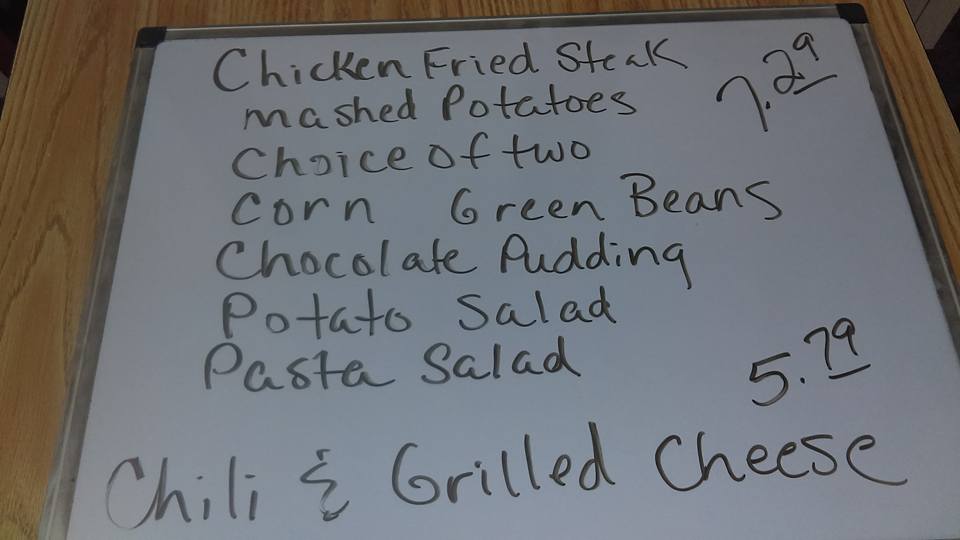 Chicken Fried Steak 7.29
mashed Potatoes
Choice of two
Corn Green Beans
Chocolate Pudding
Potato Salad
Pasta Salad 5.79
Chili & Grilled Cheese